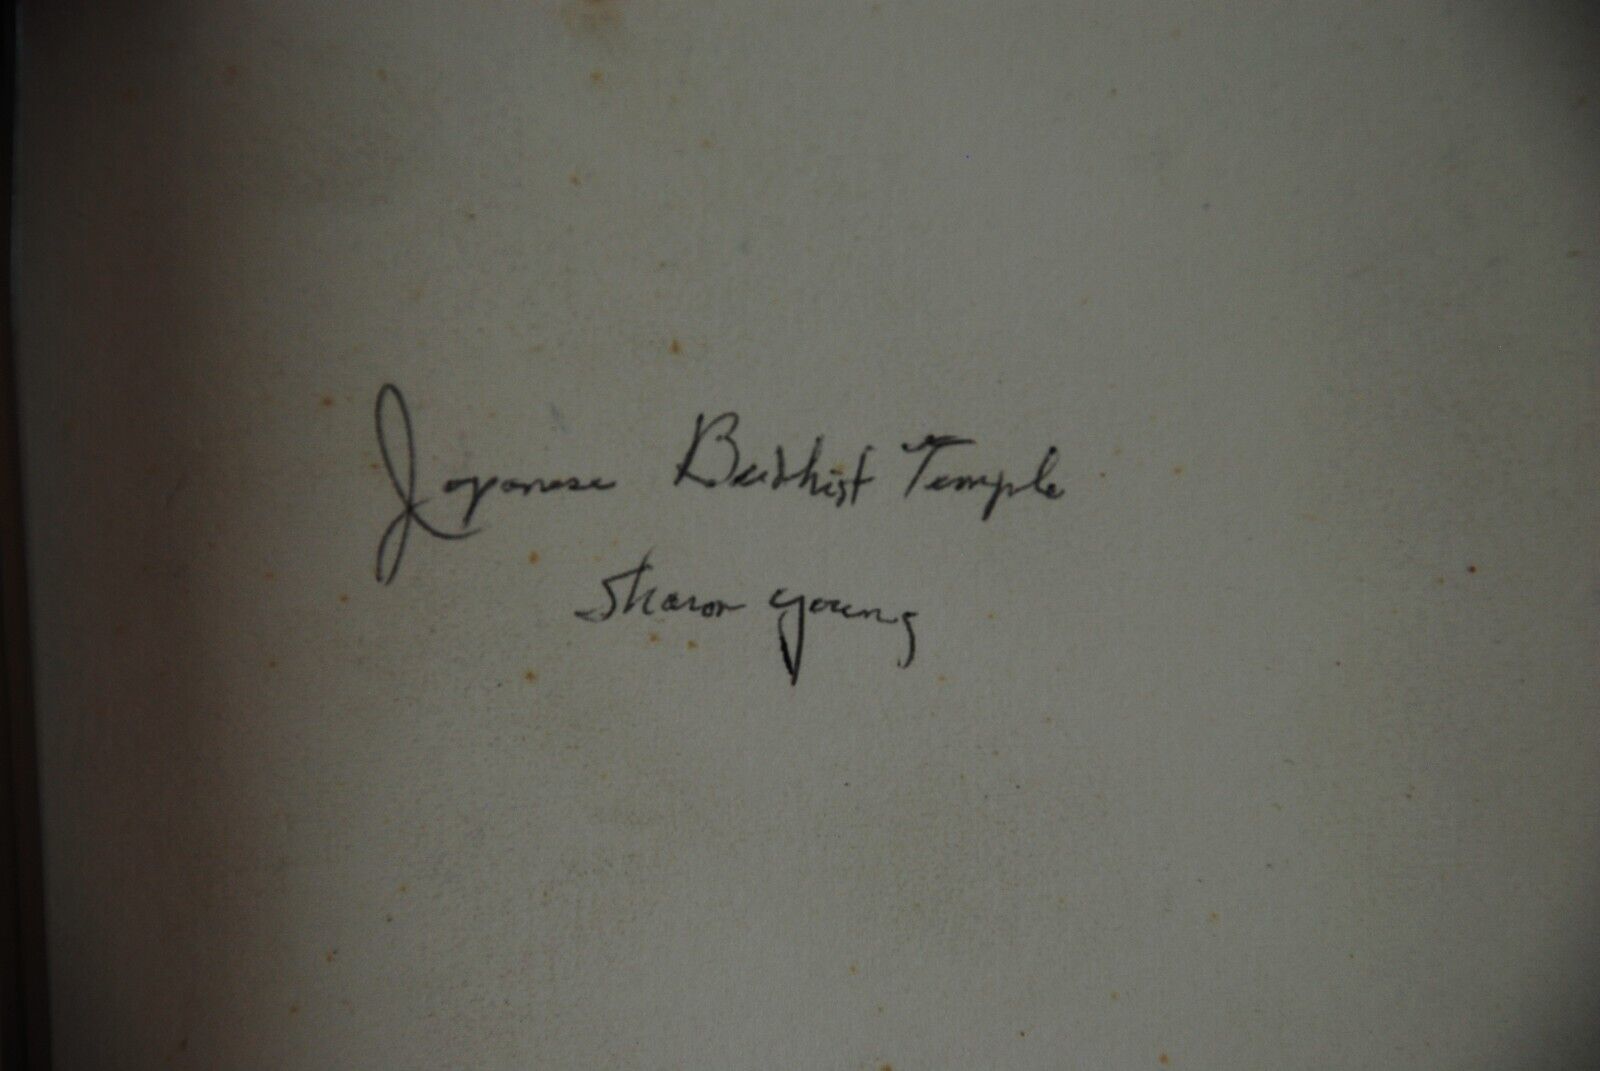 Japanese Buddhist Temple
Sharon Young